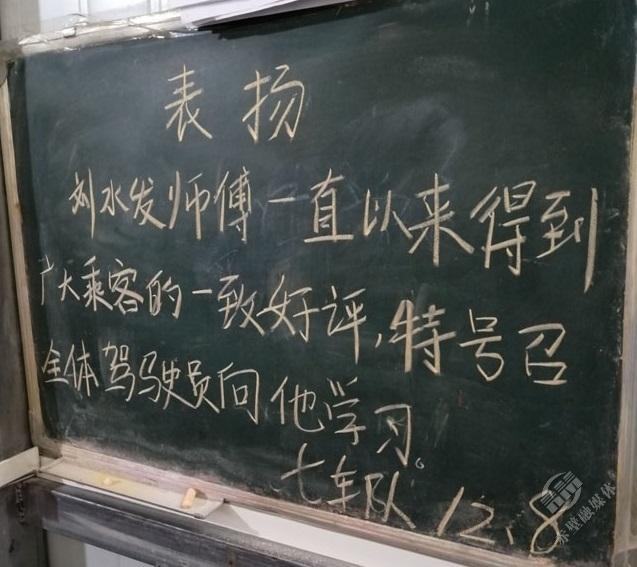 表扬
刘水发师傅一直以来得到
广大乘客的一致好评,特号召
全体驾驶员向他学习。
七车队 12.8
赤壁融媒体